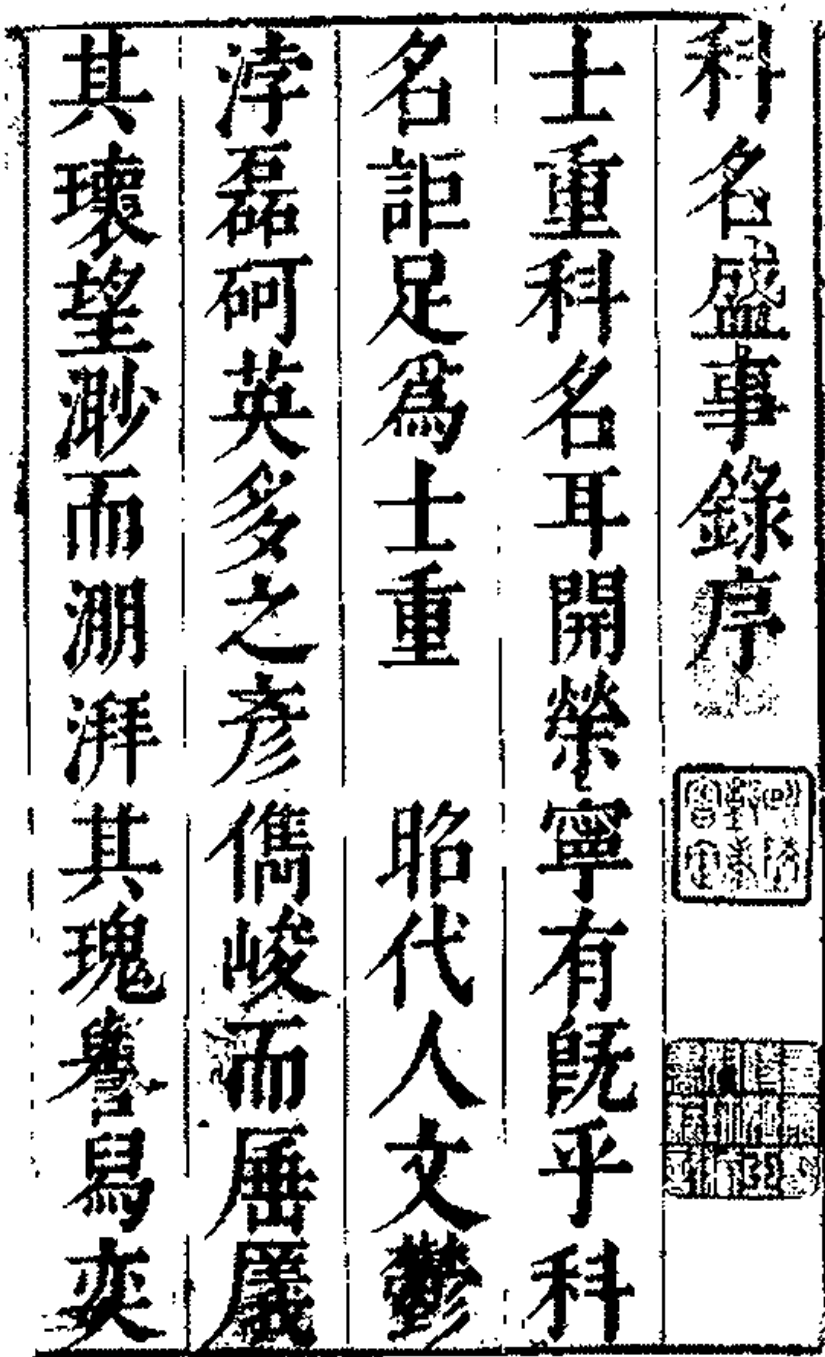 科名盛事錄序
士重科名耳開榮寧有旣乎科
名詎足爲士重　昭代人文鬱
浡磊砢英多之彥儁峻而厜㕒
其瓌望渺而淜湃其瑰舄奕